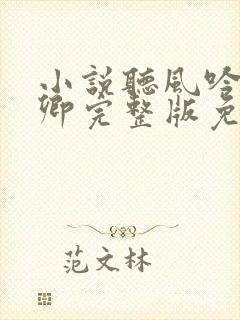 小説聽風吟
卿完整版免
范文林